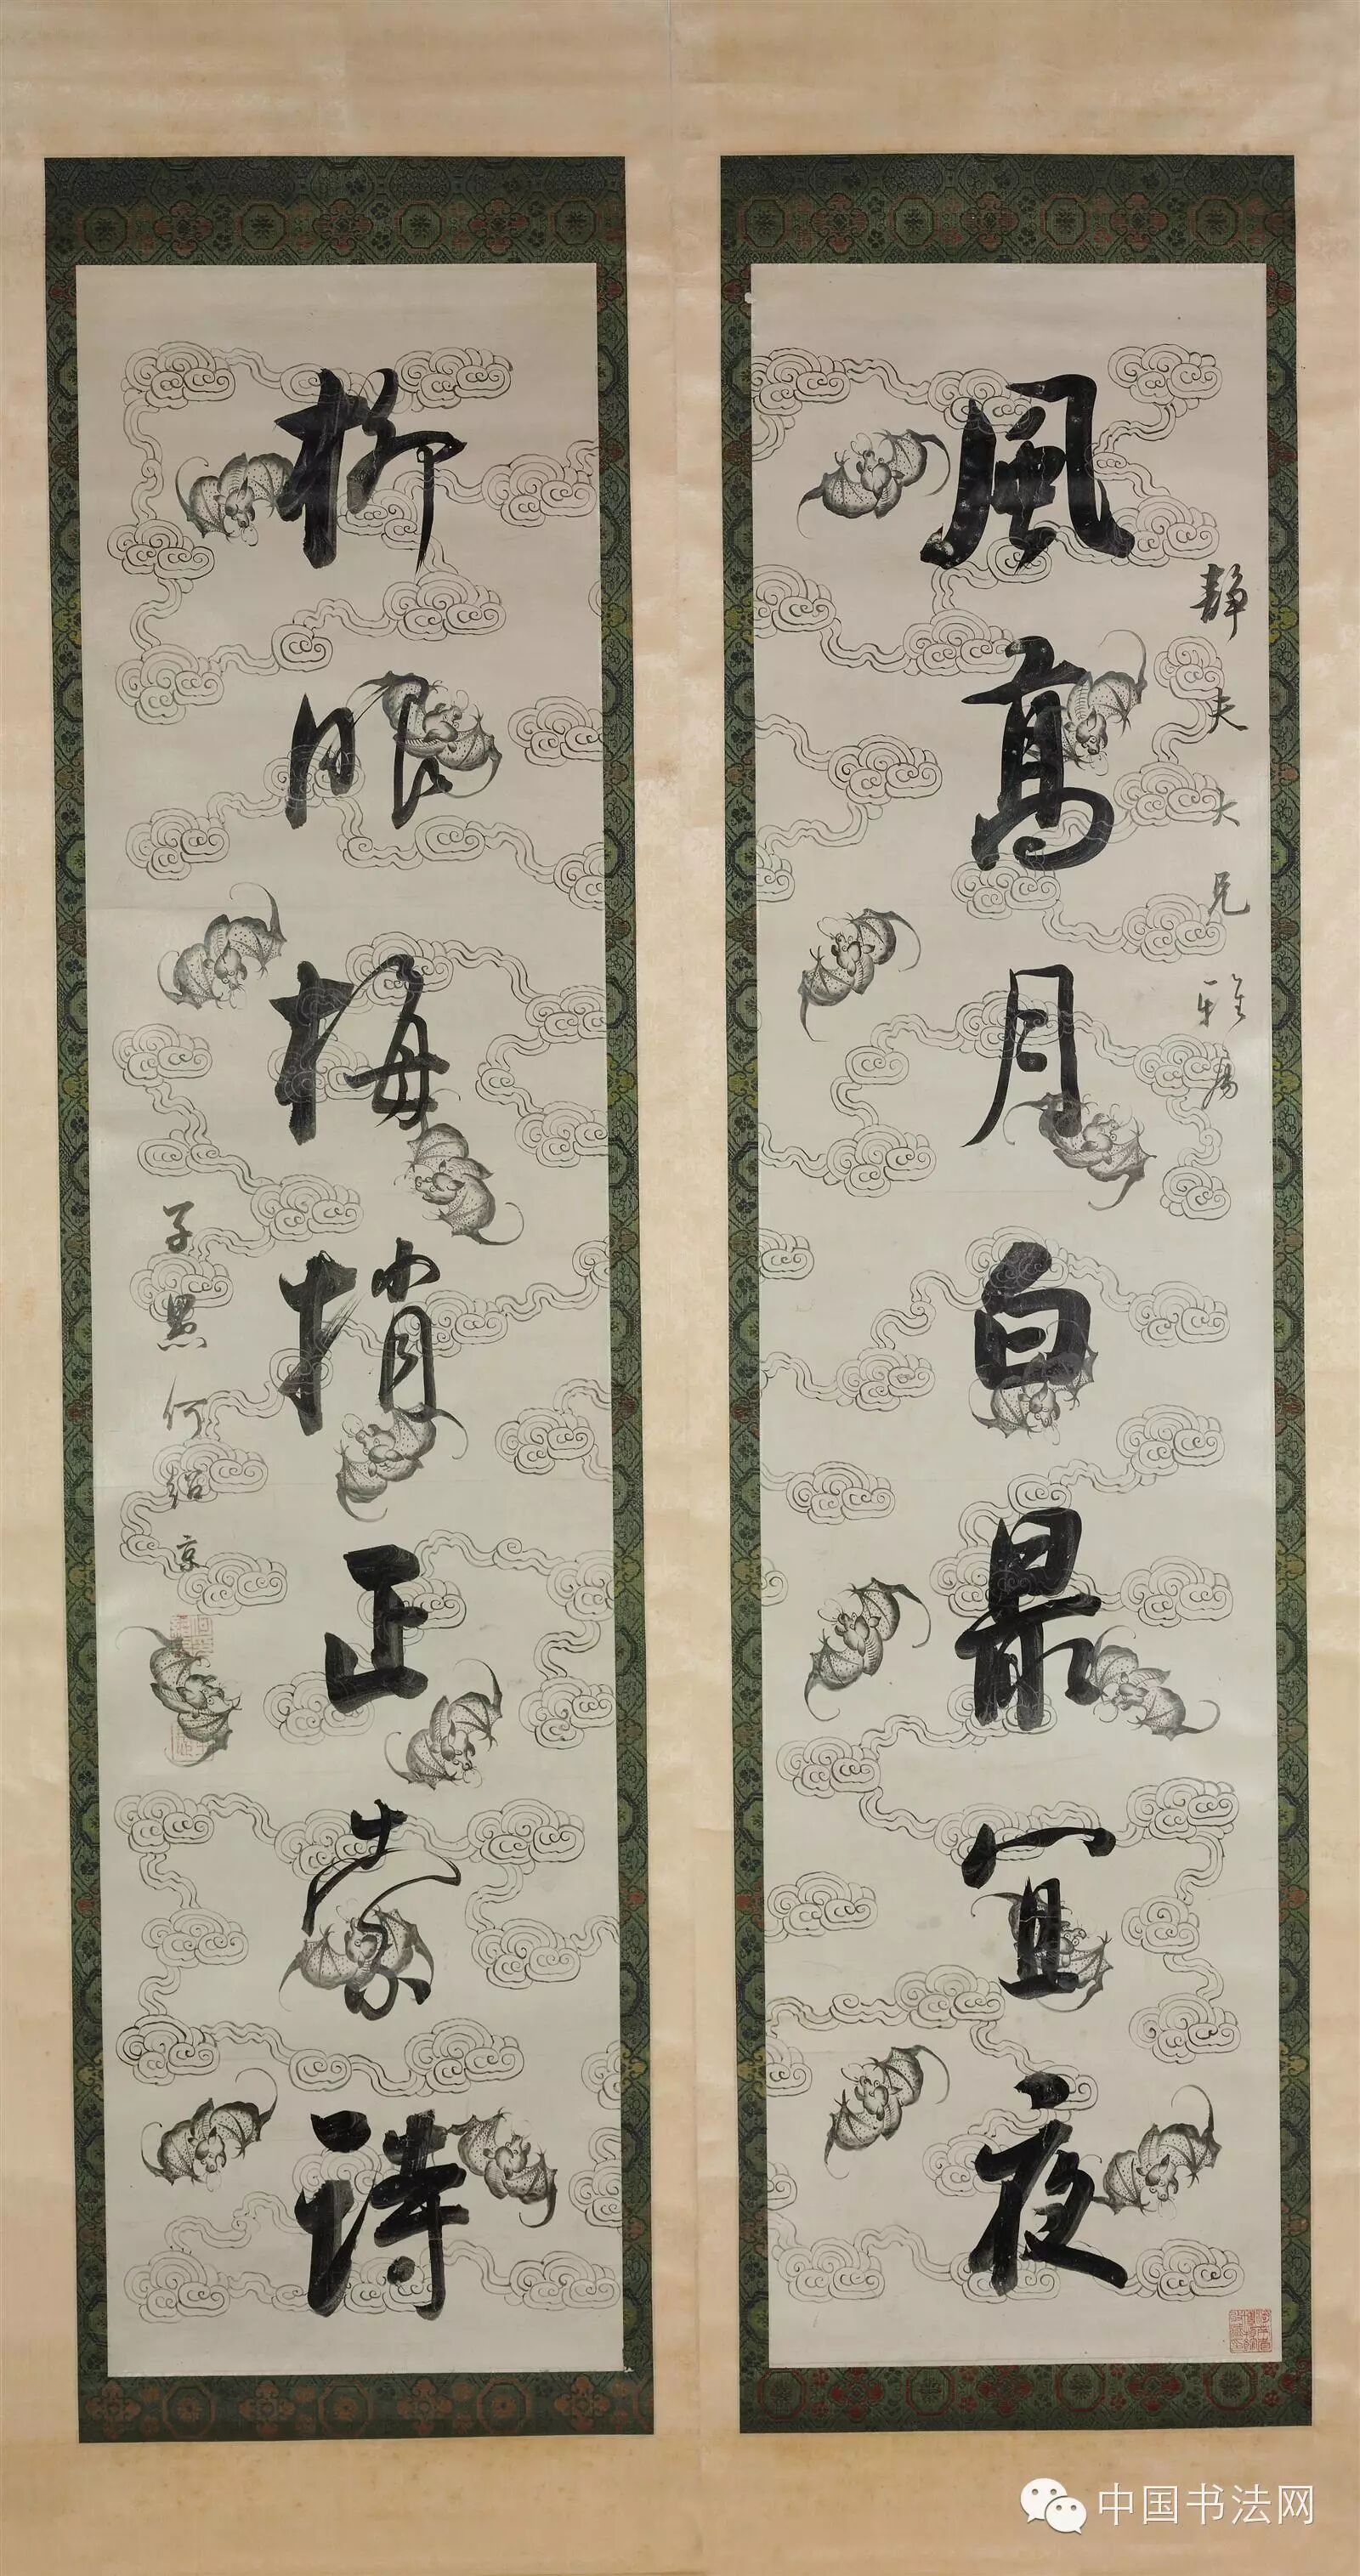 靜夫大兄雅屬
風高月白最宜夜
柳眼梅梢正索詩
子愚何紹京
中国书法网